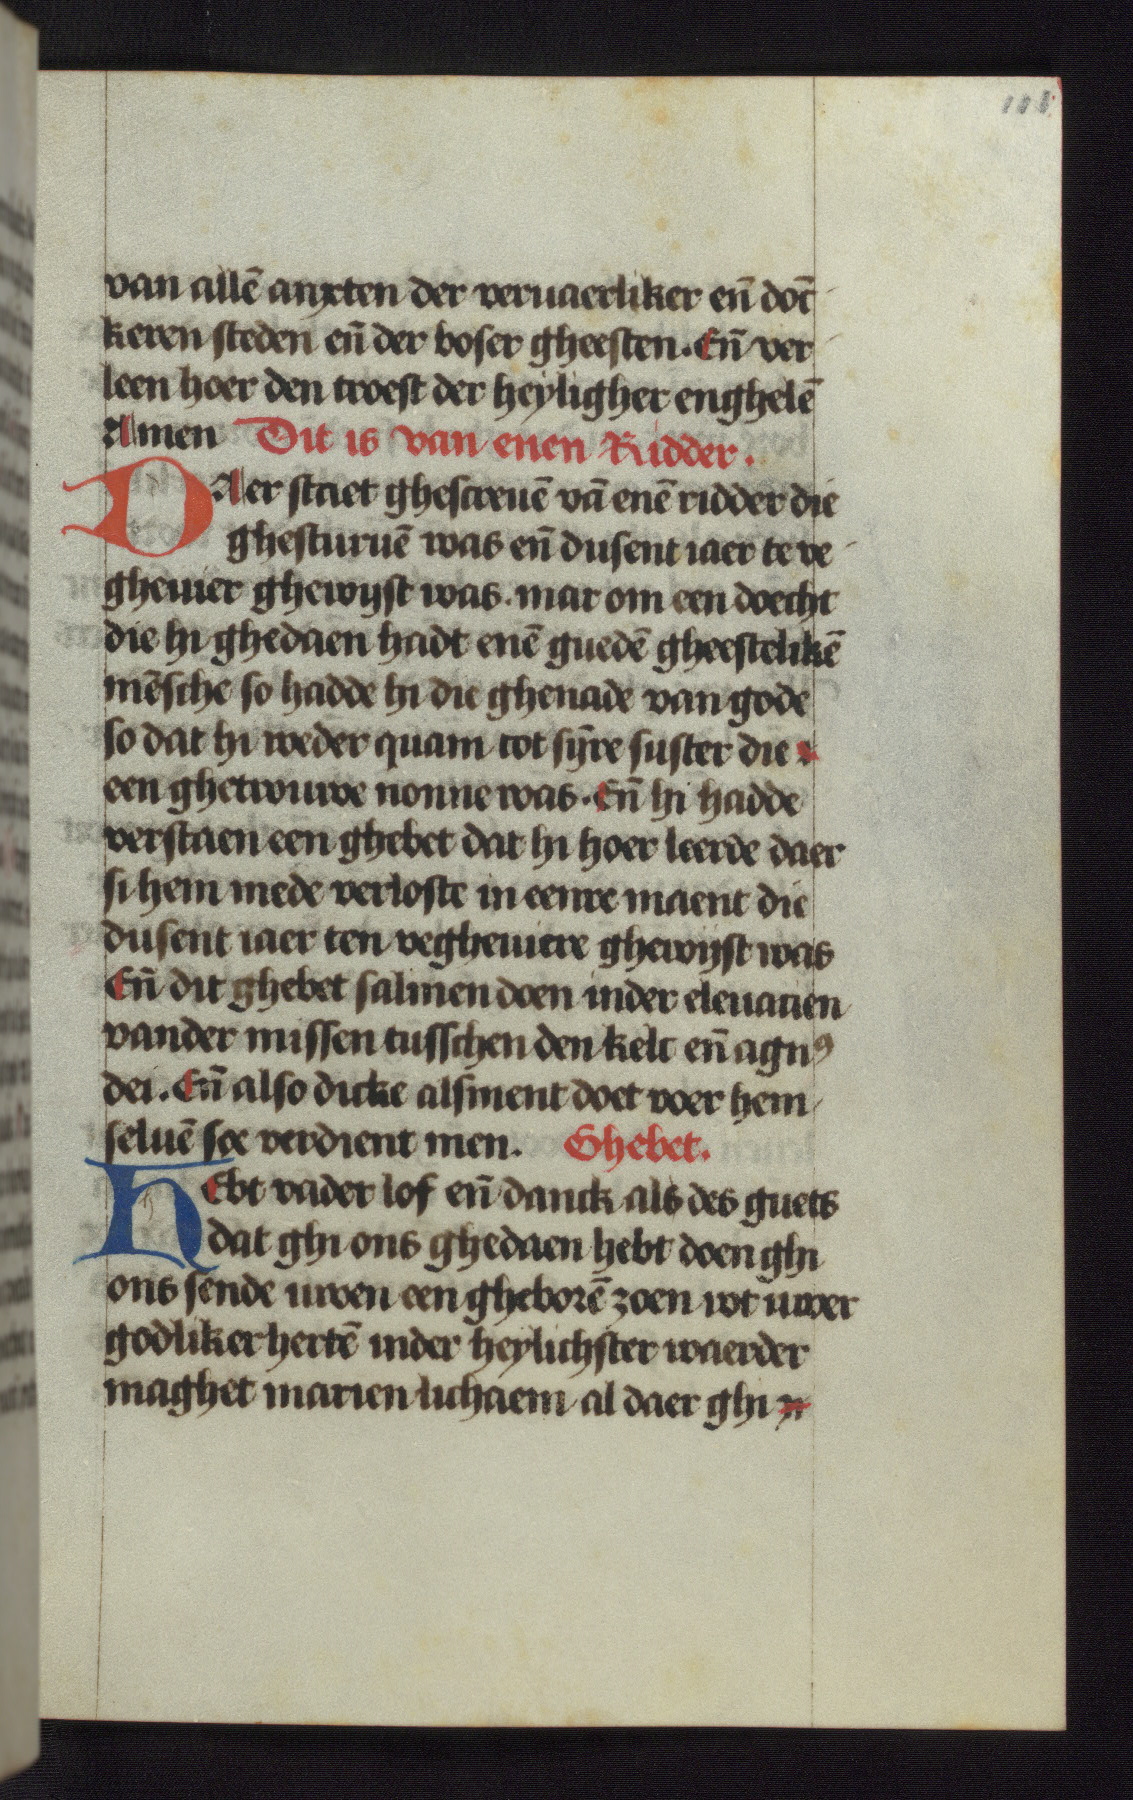 108
van allē anxten der veruaerliker en̄ dōc
keren steden en̄ der boser gheesten. En̄ ver
leen hoer den troest der heyligher enghelē
Amen Dit is van enen Ridder.
DAer staet ghescreuē vā enē ridder die
ghesturuē was en̄ dusent iaer te ve
gheuier ghewijst was. mar om een doecht
die hi ghedaen hadt enē guedē gheestelikē
mēsche so hadde hi die ghenade van gode
so dat hi weder quam tot sijre suster die
een ghetwurve nonne was. En̄ hi hadde
verstaen een ghebet dat hi hoer leerde daer
si hem mede verloste in eenre maent die
dusent iaer ten vegheuiere ghewijst was
En̄ dit ghebet salmen doen inder eleuatien
vander missen tusschen den kelc en̄ agnꝰ
dei. En̄ also dicke alsment doet voer hem
seluē soe verdient men. Ghebet.
HEbt vader lof en̄ danck als des guets
dat ghi ons ghedaen hebt doen ghi
ons sende uwen een gheborē zoen wt uwer
godliker hertē inder heylichster waerder
maghet marien lichaem al daer ghi